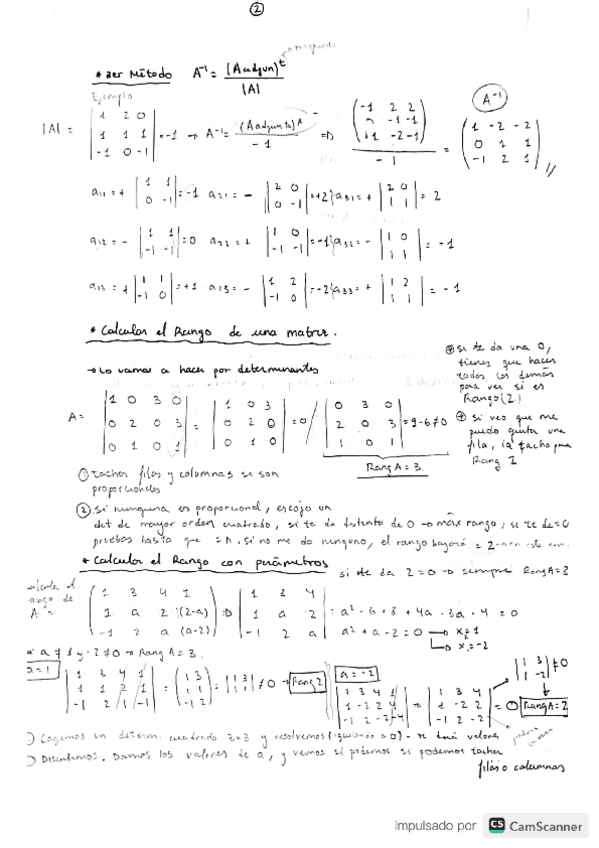 ②
* 3er Método A⁻¹ = (Aadjun)ᵗ / |A|
Ejemplo
|A| = | 1 2 0 | 1 1 1 | -1 0 -1 | = -1 → A⁻¹ = (Aadjunto) / -1 ⇒ / -1 = ( 1 -2 -2 | 0 1 1 | -1 2 1 ) A⁻¹
a11 = + | 1 1 | 0 -1 | = -1 a21 = - | 2 0 | 0 -1 | = +2 a31 = + | 2 0 | 1 1 | = 2
a12 = - | 1 1 | -1 -1 | = 0 a22 = + | 1 0 | -1 -1 | = -1 a32 = - | 1 0 | 1 1 | = -1
a13 = + | 1 1 | -1 0 | = +1 = - | 1 2 | -1 0 | = -2 a33 = + | 1 2 | 1 1 | = -1
* Calcular el Rango de una matriz.
→ Lo vamos a hacer por determinantes
* si te da una 0,
tienes que hacer
todos los demás
para ver si es
Rango (2)
A = | 1 0 3 0 | 0 2 0 3 | 0 1 0 1 | = | 1 0 3 | 0 2 0 | 0 1 0 | = 0 / | 0 3 0 | 2 0 3 | 1 0 1 | = 9-6≠0
Rang A = 3
* si veo que me
puedo quitar una
fila, la tacho
Rang 2
① tachar filas y columnas si son
proporcionales
② si ninguna es proporcional, escojo un
det de mayor orden cuadrado, si te da distinto de 0 → máx rango, si te da = 0
pruebas hasta que si no me da ninguno, el rango bajará = 2
* Calcular el Rango con parámetros
si te da 2 = 0 → siempre Rang A = 3
el
rango de
A = ( 1 3 4 1 | 1 a 2 (2-a) | -1 2 a (a-2) ) ⇒ | 1 3 4 | 1 a 2 | -1 2 a | = a² - 6 + 8 + 4a - 3a - 4 = 0
a² + a - 2 = 0 → x₁ = 1
→ x₂ = -2
a ≠ 1 y -2 ≠ 0 → Rang A = 3.
a = 1 | 1 3 4 1 | 1 1 2 1 | -1 2 1 -1 | = ( 1 3 | 1 1 | -1 2 ) = ≠ 0 → Rang 2
a = -2 | 1 3 4 1 | 1 -2 2 4 | -1 2 -2 -4 | = | 1 3 4 | 1 -2 2 | -1 2 -2 | = 0 | 1 3 | 1 -2 | ≠ 0
Rang A = 2
) Cogemos un determ. cuadrado 3x3 y resolvemos (igualando a 0) - te dará valores
) Discutimos. Damos los valores de a, y vemos si podemos si podemos tachar
filas o columnas
impulsado por CS CamScanner